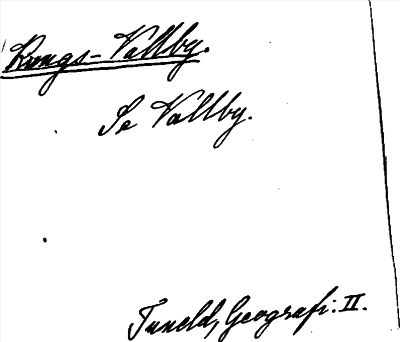 Kungs-Vallby.
Se Vallby.
Tuneld, Geografi. II.